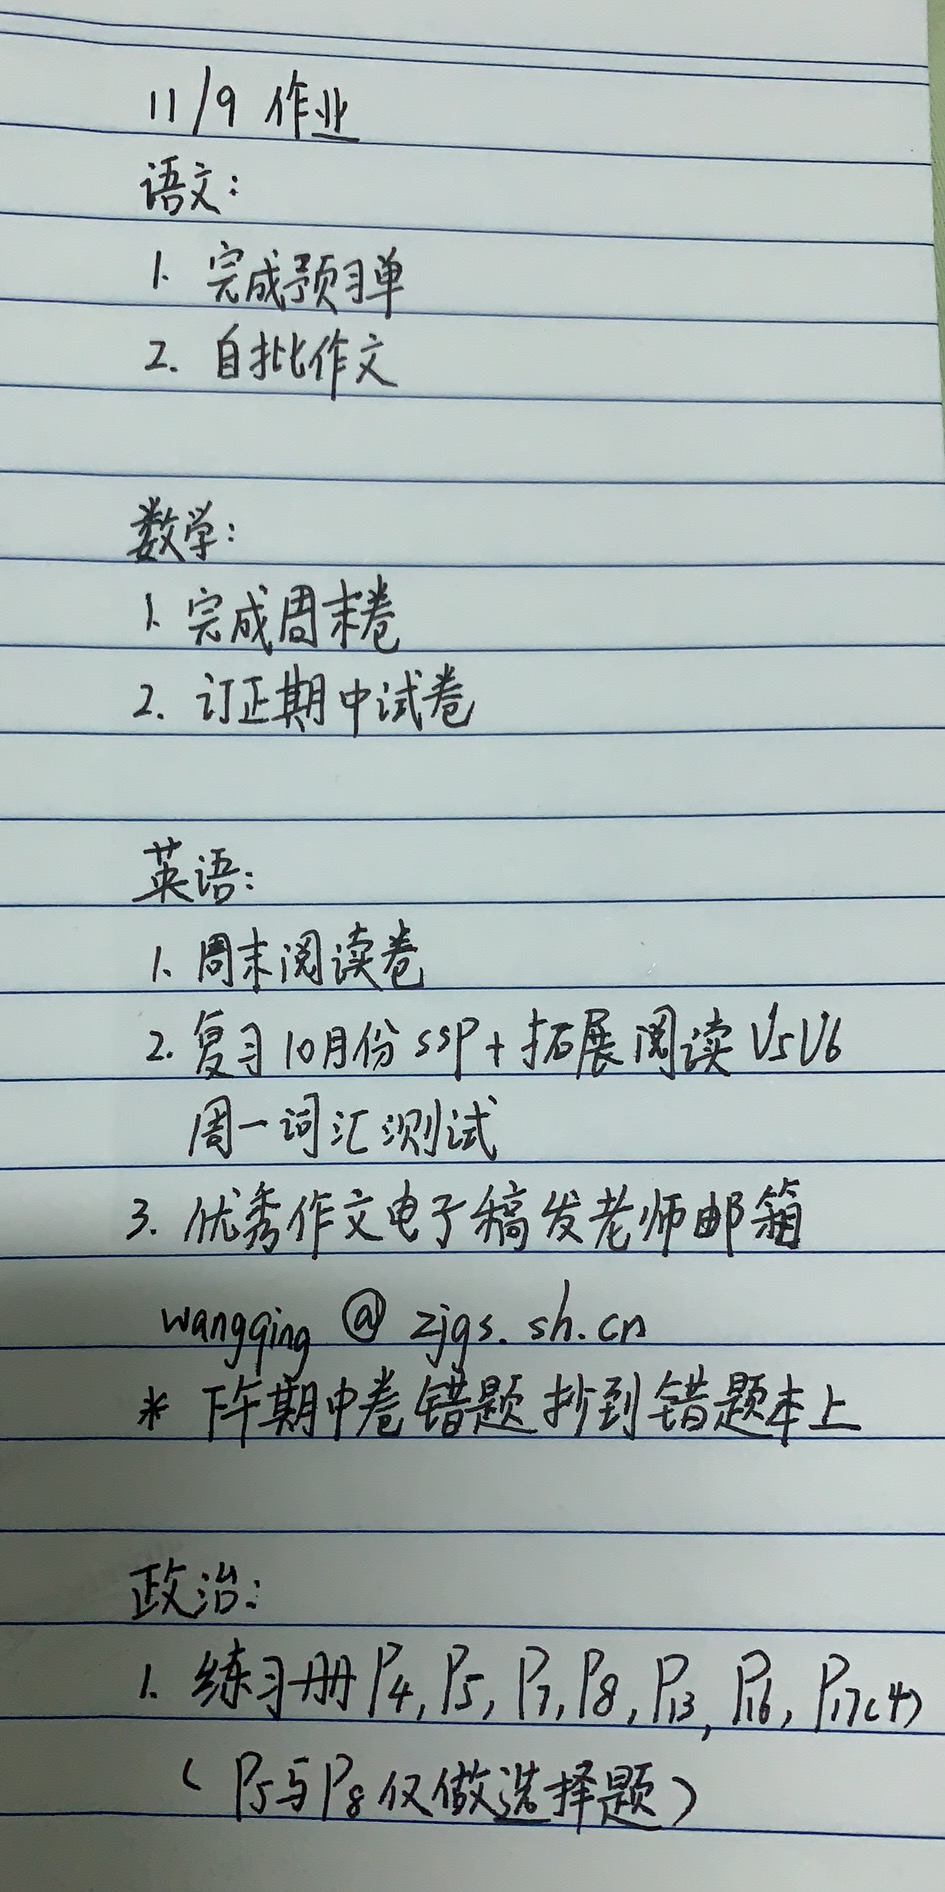 11/9 作业
语文:
1. 完成预习单
2. 自批作文
数学:
1. 完成周末卷
2. 订正期中试卷
英语:
1. 周末阅读卷
2. 复习10月份SSP+拓展阅读U5U6
周一词汇测试
3. 优秀作文电子稿发老师邮箱
wangqing@zjgs.sh.cn
* 下午期中卷错题抄到错题本上
政治:
1. 练习册P4, P5, P7, P8, P13, P16, P17(4)
(P5与P8仅做选择题)